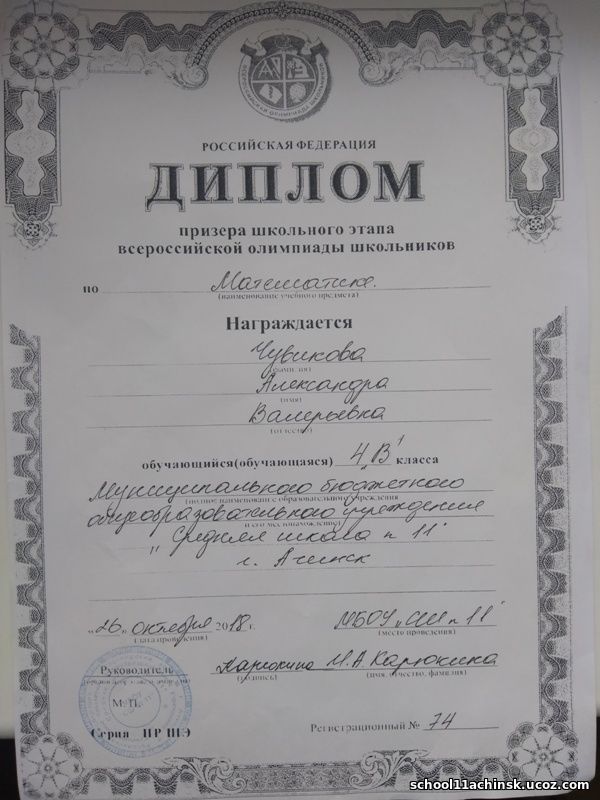 РОССИЙСКАЯ ФЕДЕРАЦИЯ
ДИПЛОМ
призера школьного этапа
всероссийской олимпиады школьников
по Математике.
(наименование учебного предмета)
Награждается
Чувикова
(фамилия)
Александра
(имя)
Валерьевна
(отчество)
обучающийся(обучающаяся) 4 „В" класса
Муниципального бюджетного
(полное наименование образовательного учреждения
общеобразовательного учреждения
и его местонахождение)
„Средняя школа n 11"
г. Ачинск
„26„ октября 2018 г.
МБОУ „СШ n 11"
(дата проведения)
(место проведения)
Руководитель Карюкина И.А. Карюкина
(подпись)
(имя, отчество, фамилия)
М.П.
Серия ПР ШЭ
Регистрационный № 74
school11achinsk.ucoz.com